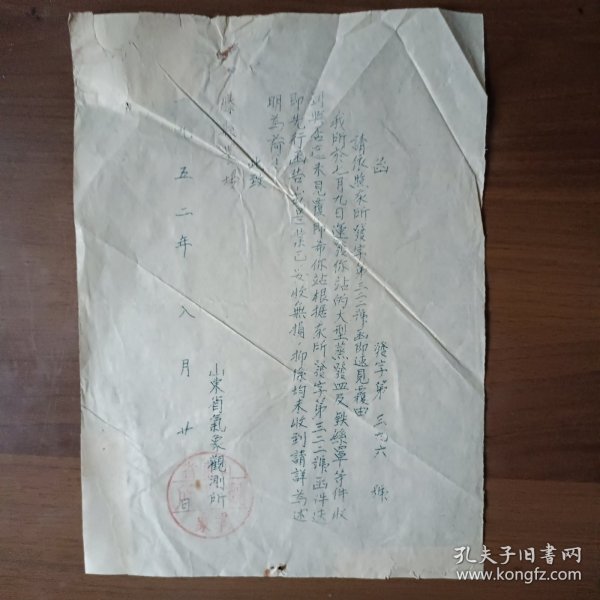 函
發字第三九六號
請依照本所發字第三二二號函即速見覆由
我所於七月九日運發你站的大型蒸發皿及鉄絲罩等件收
到與否迄未見覆即希你站根據本所發字第三二二號函件迅
即先行函告 收無損,抑係均未收到請詳為述
明為荷
此致
滕
山東省氣象觀測所
一九五二年八月廿 日
孔夫子旧书网
www.kongfz.com